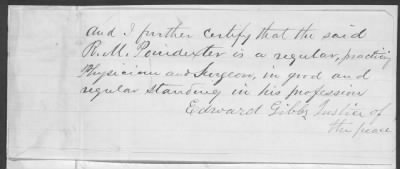 And I further certify that the said
R. M. Poindexter is a regular, practicing
Physician and Surgeon, in good and
regular standing in his profession
Edward Gibbs Justice of
the peace